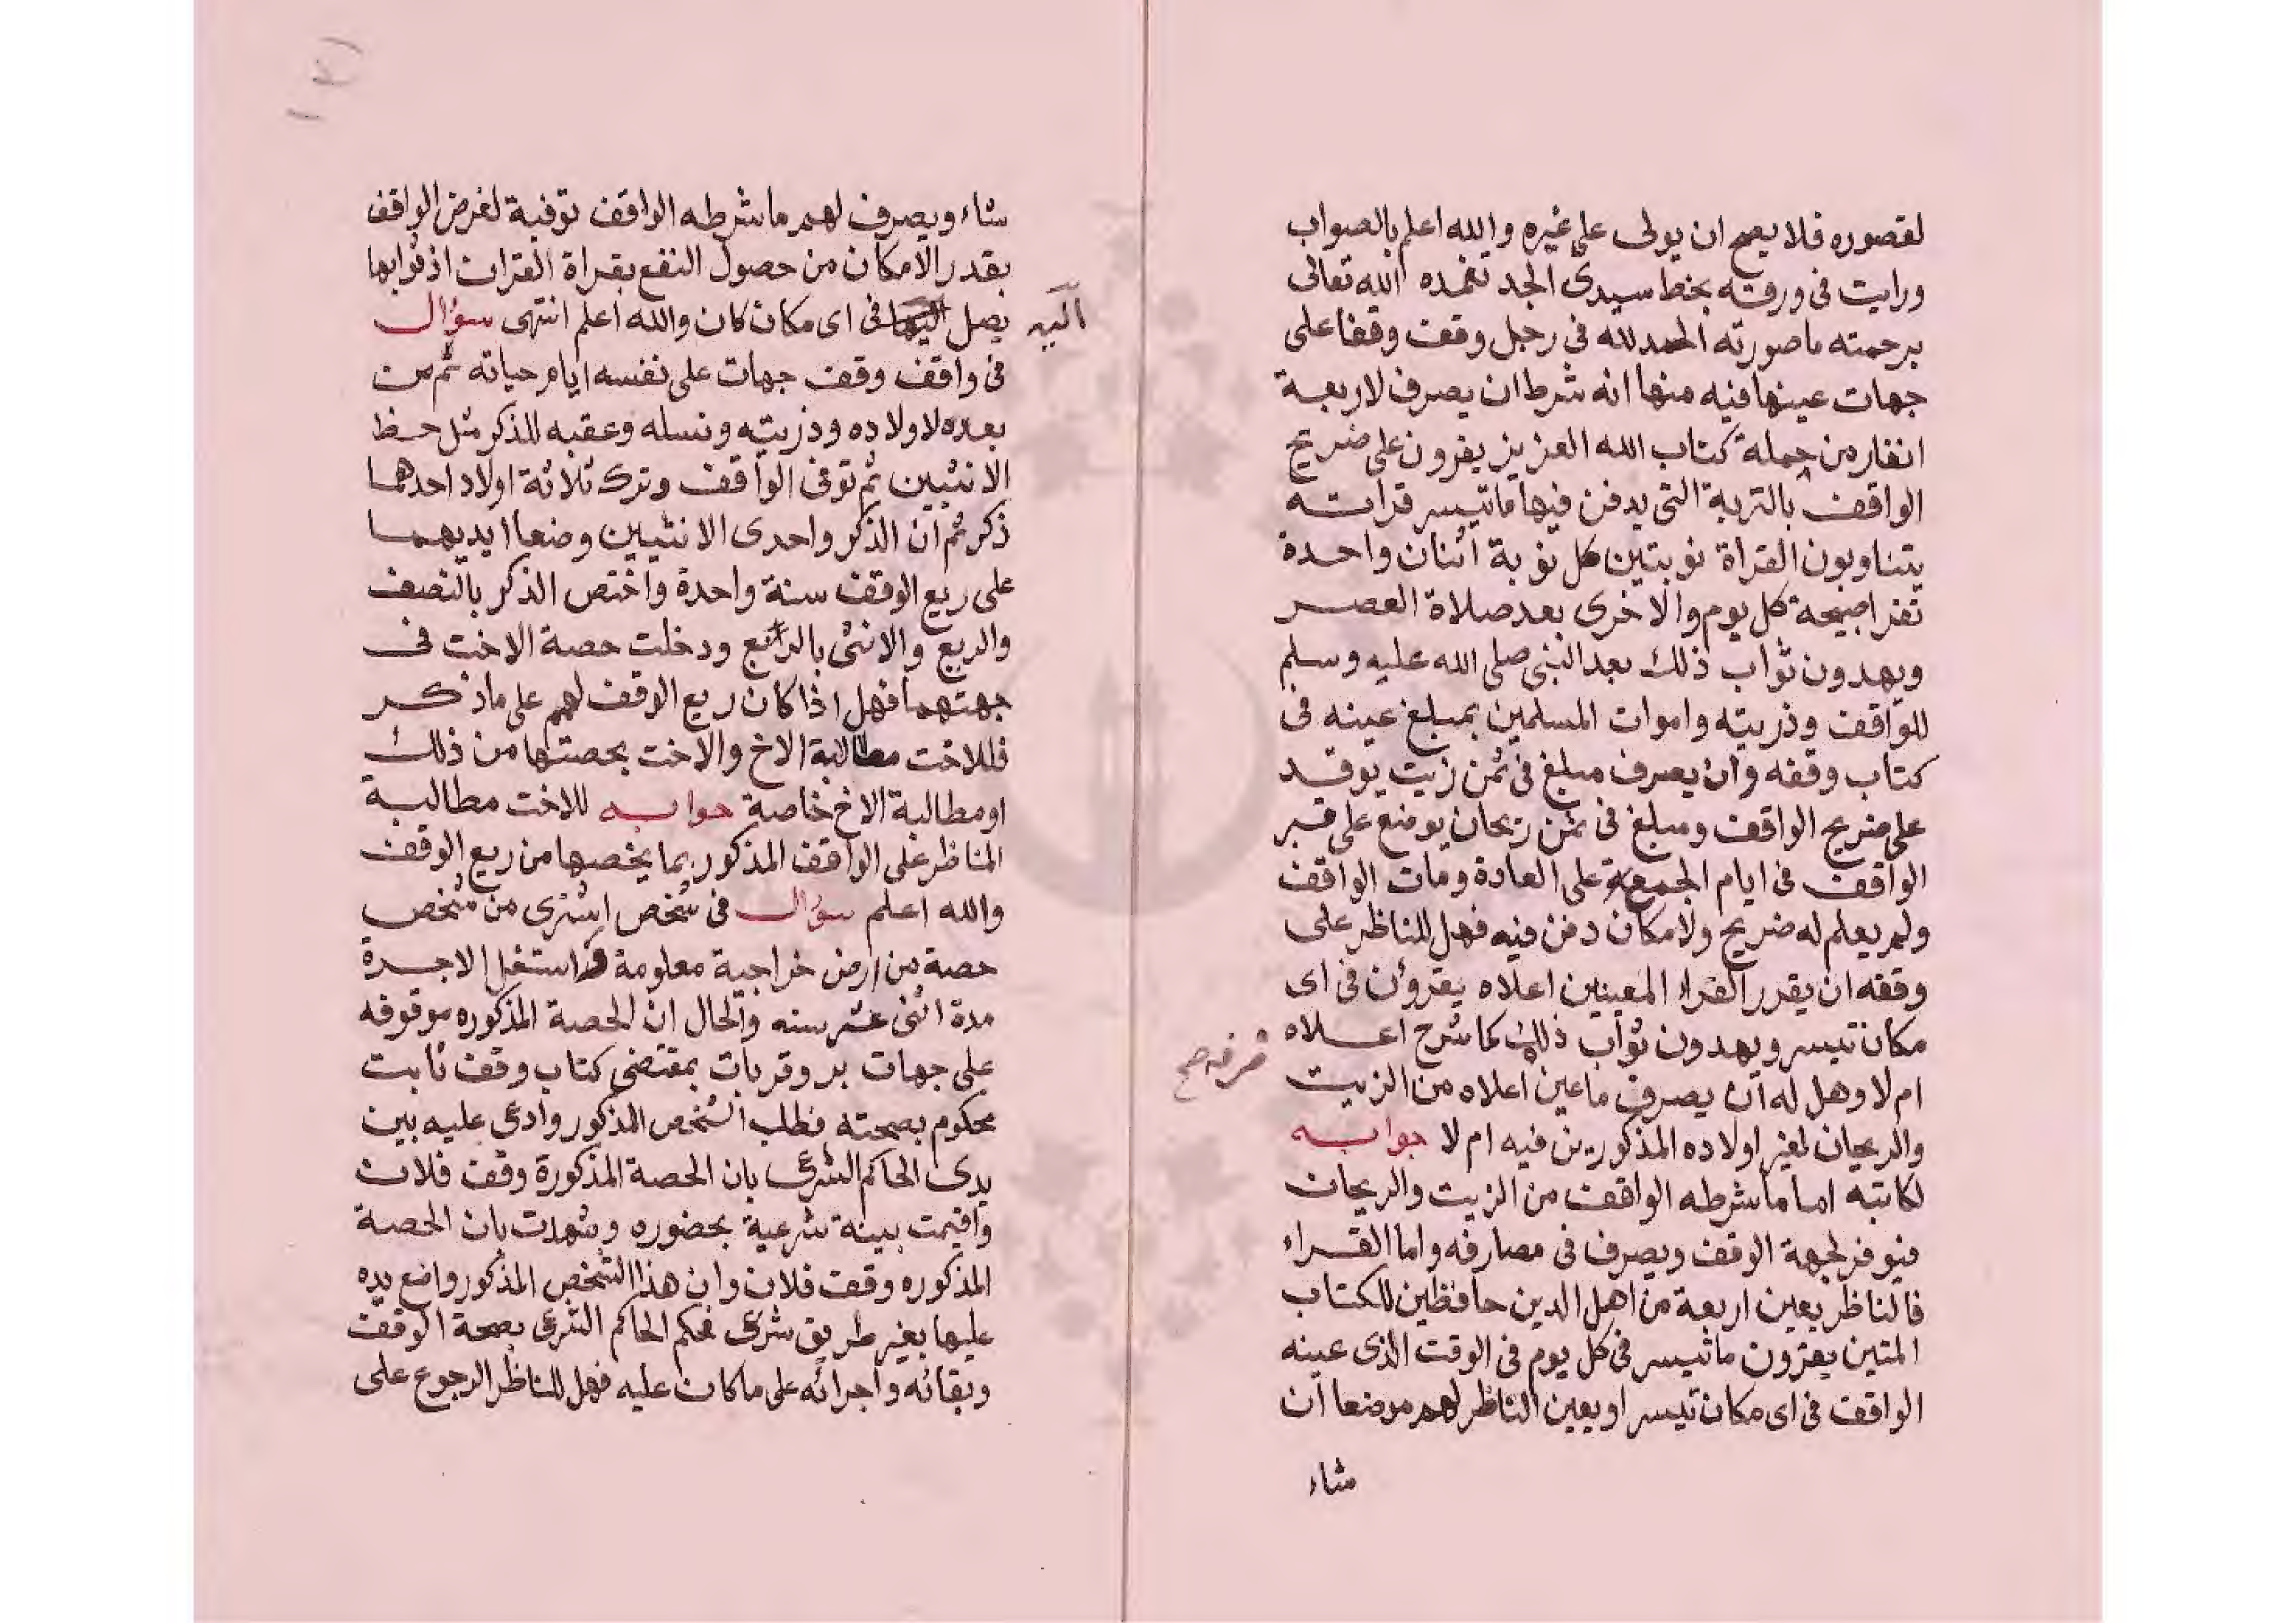 لقصوره فلا يصح ان يولى على غيره والله اعلم بالصواب
ورايت فى ورقة بخط سيدى الجد تغمده الله تعالى
برحمته ما صورته الحمد لله فى رجل وقف وقفا على
جهات عينها فيه منها انه شرط ان يصرف لاربعة
انفار من حملة كتاب الله العزيز يقرون على ضريح
الواقف بالتربة التى يدفن فيها ما تيسر قراته
يتناوبون القراة نوبتين كل نوبة اثنان واحدة
تقرا صبيحة كل يوم والاخرى بعد صلاة العصر
ويهدون ثواب ذلك بعد النبى صلى الله عليه وسلم
للواقف وذريته واموات المسلمين بمبلغ عينه فى
كتاب وقفه وان يصرف مبلغ فى ثمن زيت يوقد
على ضريح الواقف ومبلغ فى ثمن ريحان يوضع على قبر
الواقف فى ايام الجمعة على العادة ومات الواقف
ولم يعلم له ضريح ولا مكان دفن فيه فهل للناظر على
وقفه ان يقرر القراء المعينين اعلاه يقرؤن فى اى
مكان تيسر ويهدون ثواب ذلك كما شرح اعلاه
ام لا وهل له ان يصرف ما عين اعلاه من الزيت
والريحان لغير اولاده المذكورين فيه ام لا جوابه
لكاتبه اما ما شرطه الواقف من الزيت والريحان
فيوفر لجهة الوقف ويصرف فى مصارفه واما القراء
فالناظر يعين اربعة من اهل الدين حافظين للكتاب
المتين يقرون ما تيسر فى كل يوم فى الوقت الذى عينه
الواقف فى اى مكان تيسر او يعين الناظر لهم موضعا ان
شاء
شاء ويصرف لهم ما شرطه الواقف توفية لغرض الواقف
بقدر الامكان من حصول النفع بقراة القران اذ ثوابها
يصل اليها فى اى مكان كان والله اعلم انتهى سؤال
اليه
فى واقف وقف جهات على نفسه ايام حياته ثم من
بعده لاولاده وذريته ونسله وعقبه للذكر مثل حظ
الانثيين ثم توفى الواقف وترك ثلاثة اولاد احدهما
ذكر ثم ان الذكر واحدى الانثيين وضعا ايديهما
على ريع الوقف سنة واحدة واختص الذكر بالنصف
والربع والانثى بالربع ودخلت حصة الاخت فى
جهتهما فهل اذا كان ريع الوقف لهم على ما ذكر
فللاخت مطالبة الاخ والاخت بحصتها من ذلك
او مطالبة الاخ خاصة جوابه للاخت مطالبة
الناظر على الواقف المذكور بما يخصها من ريع الوقف
والله اعلم سؤال فى شخص اشترى من شخص
حصة من ارض خراجية معلومة واستغل الاجرة
مدة اثنى عشر سنه والحال ان الحصة المذكوره موقوفه
على جهات بر وقربات بمقتضى كتاب وقف ثابت
محكوم بصحته فطلب الشخص المذكور وادعى عليه بين
يدى الحاكم الشرعى بان الحصة المذكورة وقف فلان
واقيمت بينة شرعية بحضوره وشهدت بان الحصة
المذكوره وقف فلان وان هذا الشخص المذكور واضع يده
عليها بغير طريق شرعى فحكم الحاكم الشرعى بصحة الوقف
وبقائه واجرائه على ما كان عليه فهل للناظر الرجوع على